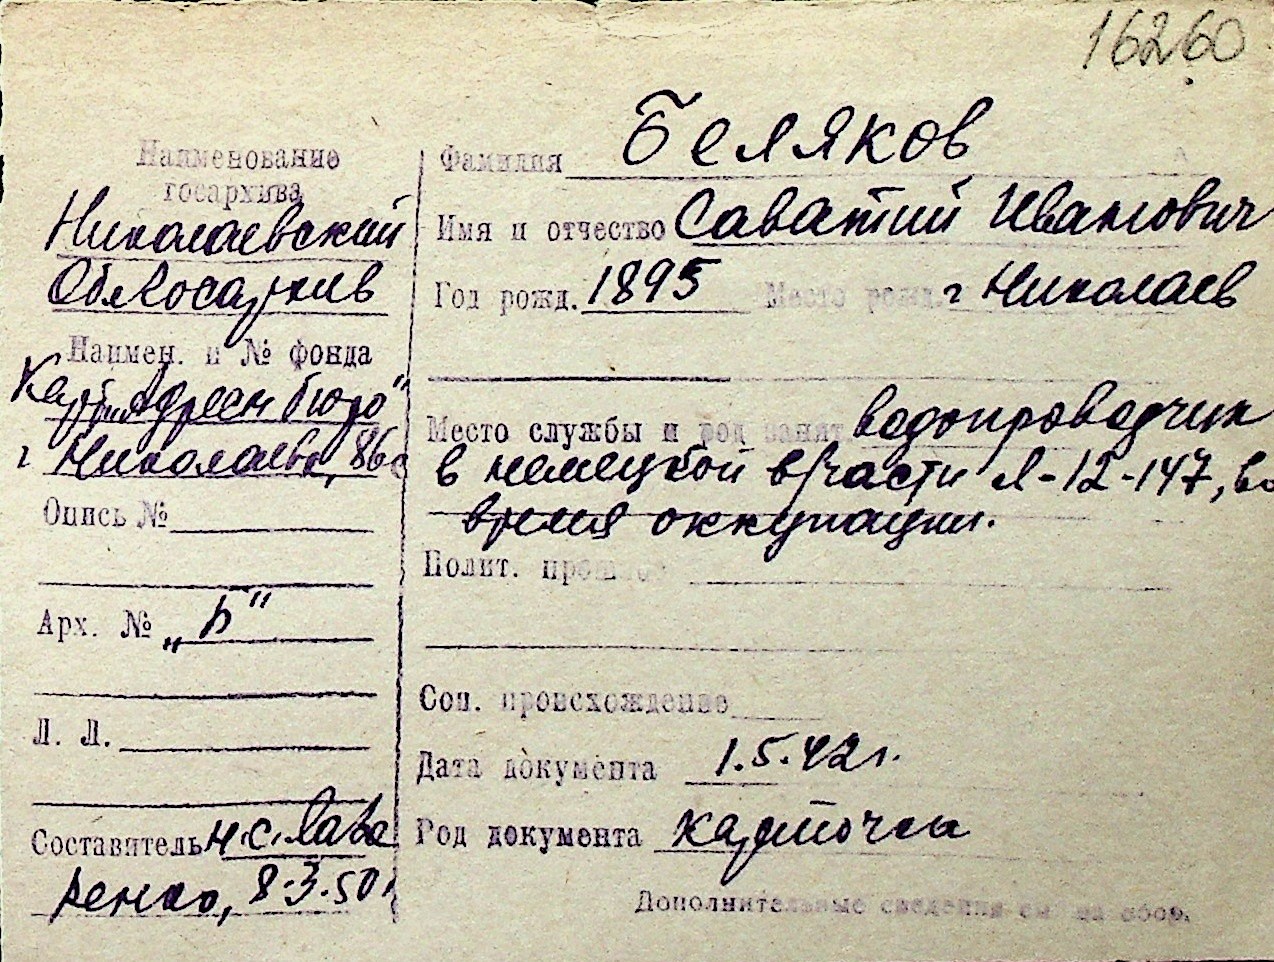 16260
Наименование
госархива
Николаевский
Облгосархив
Наимен. и № фонда
"Адресн бюро"
г Николаева, 86с
Опись №
Арх. № „Б"
Л. Л.
Составитель н.с. Лаве
ренко, 8.3.50г
Фамилия Беляков
Имя и отчество Саватий Иванович
Год рожд. 1895 Место рожд. г Николаев
Место службы и род занят. водопроводчик
в немецкой в/части Л-12-147, во
время оккупации.
Полит. прошлое
Соц. происхождение
Дата документа 1.5.42г.
Род документа карточка
Дополнительные сведения см на обор.